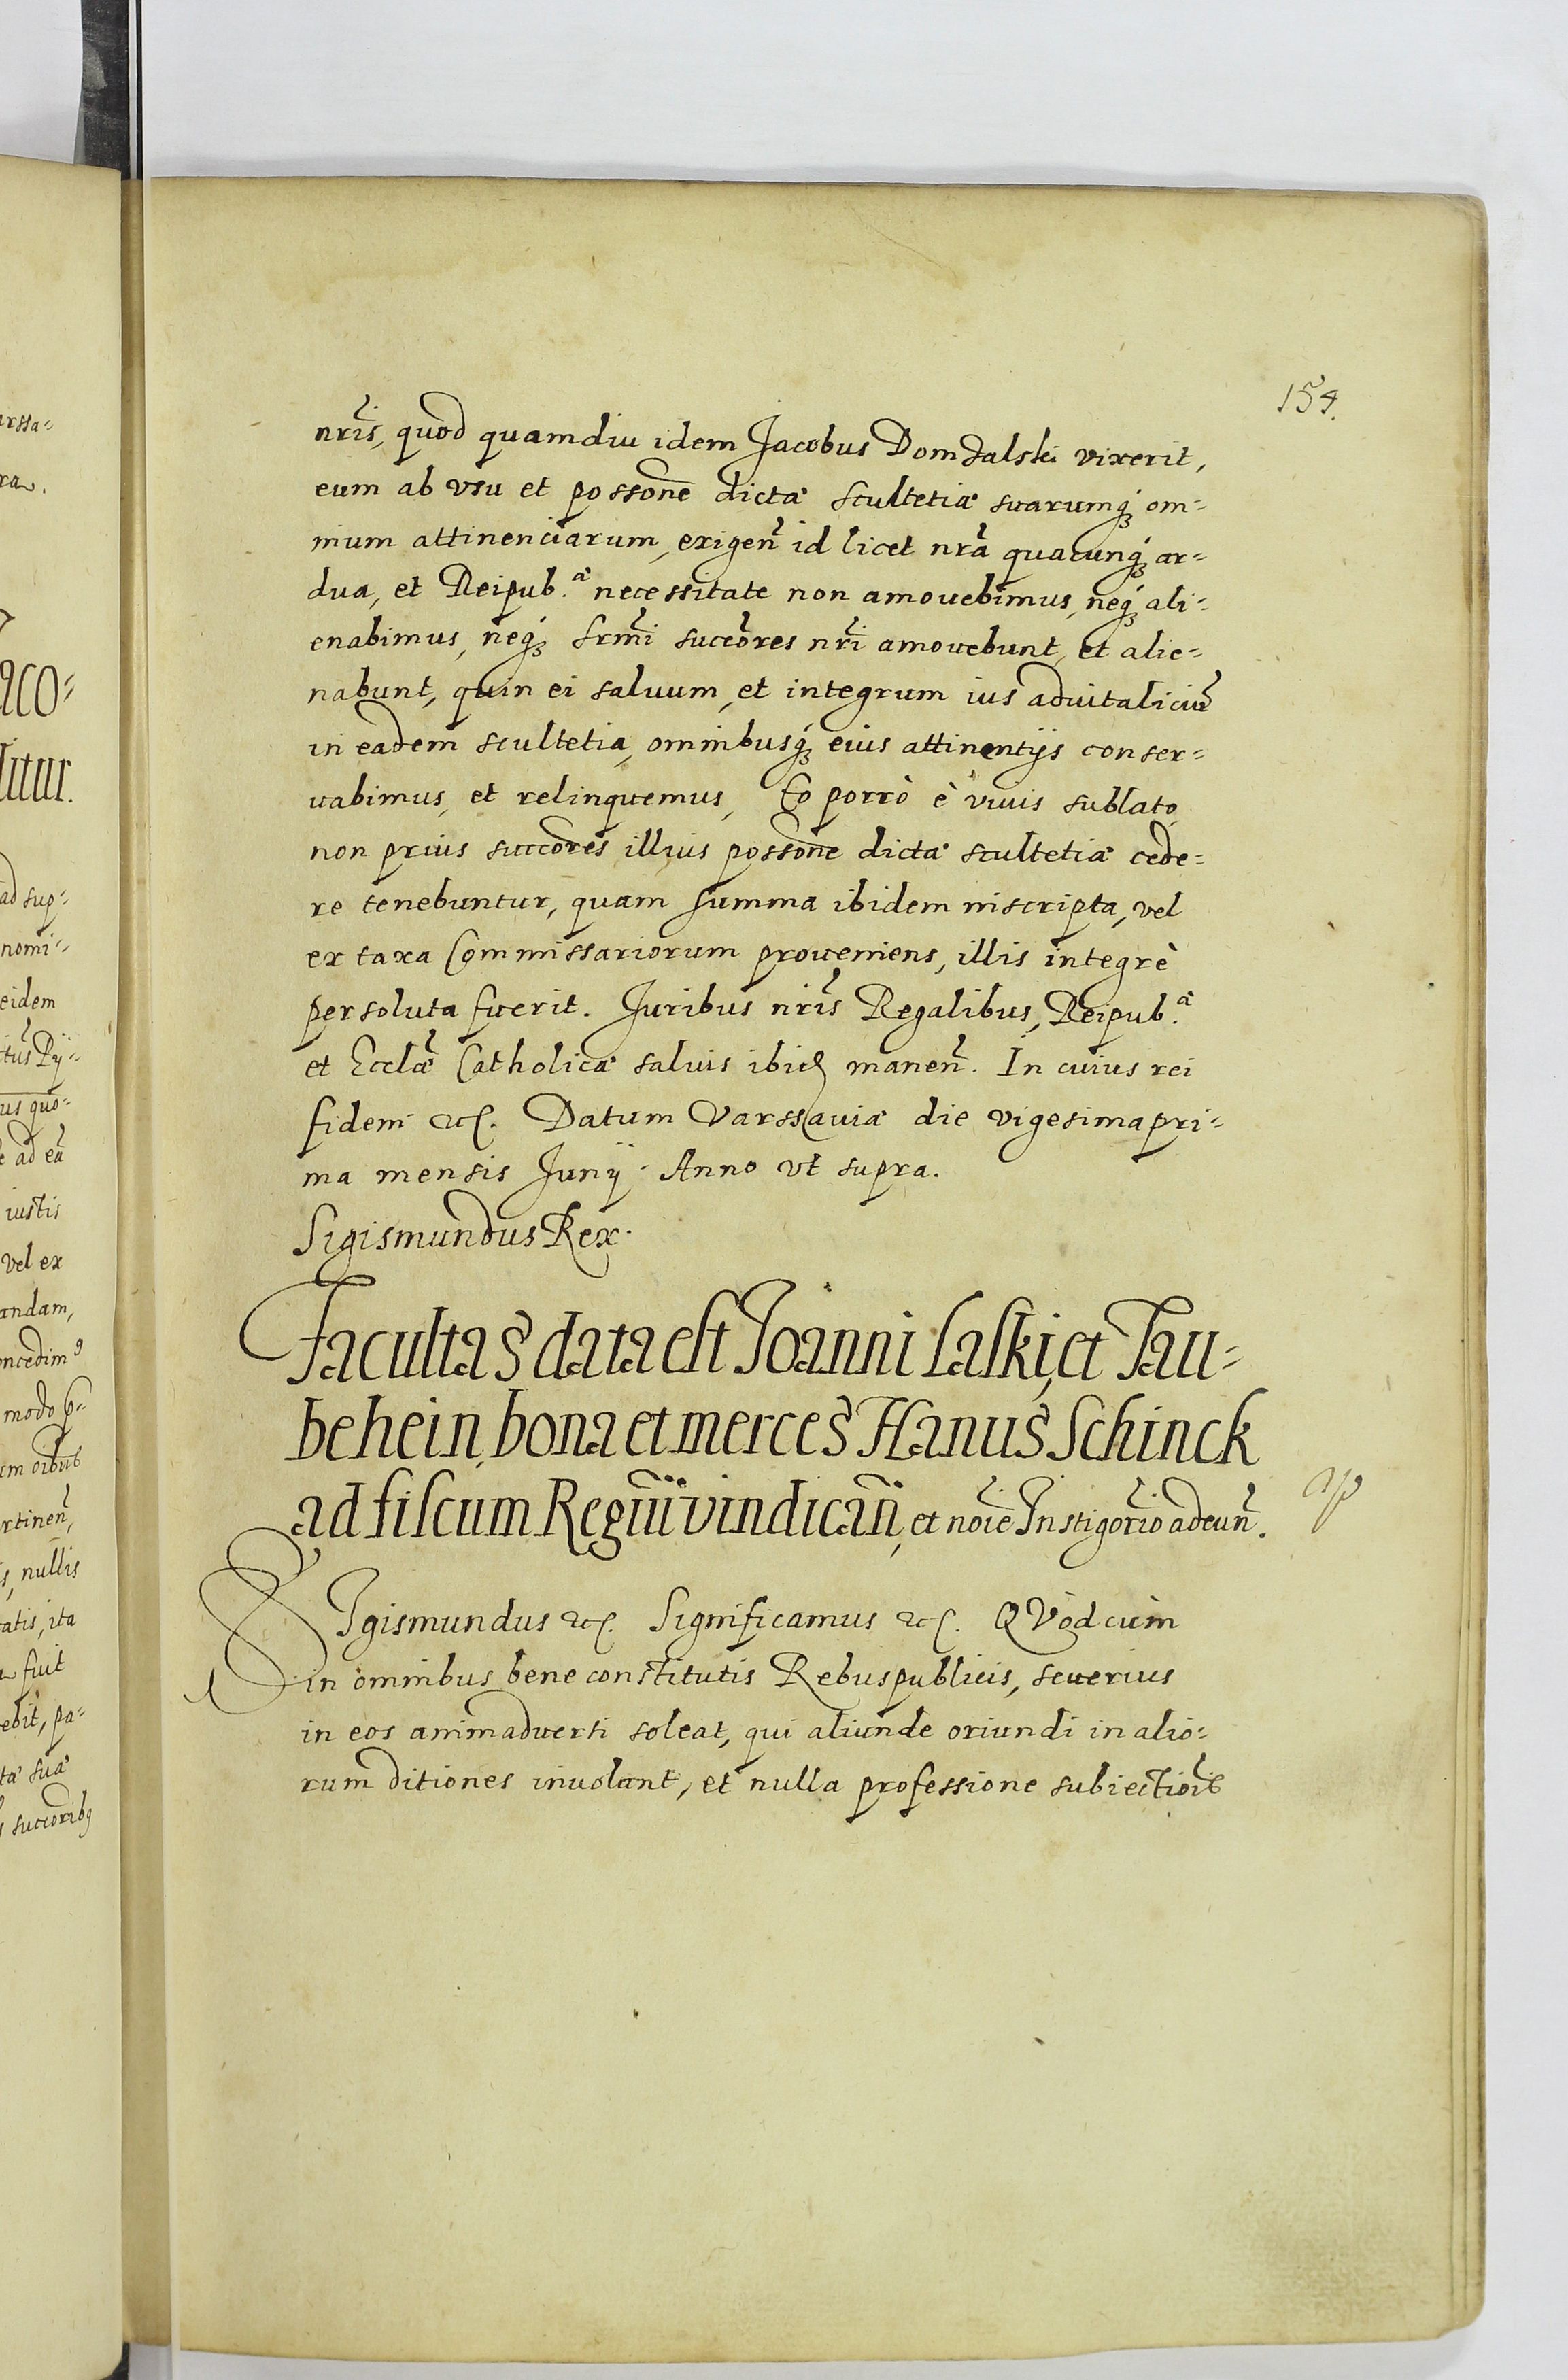 154.
nrĩs, quod quamdiu idem Jacobus Domdalski vixerit,
eum ab vsu et possoñe dictæ scultetiæ suarumq́ʒ om=
nium attinenciarum, exigeñ id licet nrã quacunq́ʒ ar=
dua, et Reipub.ᵃᵉ necessitate non amouebimus, neq́ʒ ali=
enabimus, neq́ʒ Srm̃i succõres nrĩ amouebunt, et alie=
nabunt, quin ei saluum, et integrum ius aduitaliciũ
in eadem scultetia, omnibusq́ʒ eius attinentijs conser=
uabimus, et relinquemus, Eo porrò è viuis sublato,
non prius succõres illius possoñe dictæ scultetiæ cede=
re tenebuntur, quam summa ibidem inscripta, vel
ex taxa Commissariorum proueniens, illis integrè
persoluta fuerit. Juribus nrĩs Regalibus, Reipub.ᵃᵉ
et Ecclæ̃ Catholicæ saluis ibid manen̄. In cuius rei
fidem etc. Datum Varssauiæ die vigesimapri=
ma mensis Junij. Anno vt supra.
Sigismundus Rex.
Facultas data est Joanni Laski, et Tau=
behein, bona et merces Hanus Schinck
ad fiscum Regiũ vindicañ, et noĩe Instigorĩo adeuñ.
SIgismundus etc. Significamus etc. QVod cùm
in omnibus bene constitutis Rebuspublicis, seuerius
in eos animaduerti soleat, qui aliunde oriundi in alio=
rum ditiones inuolant, et nulla professione subiectioĩs